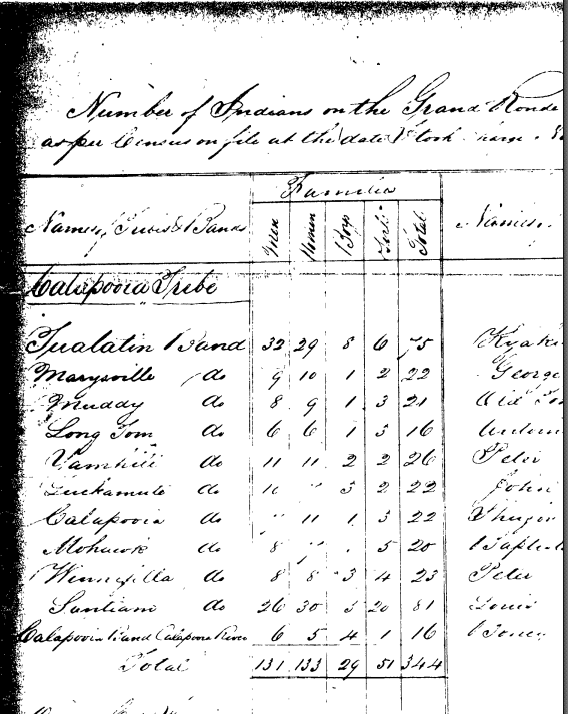 Number of Indians on the Grand Ronde
as per Census on file at the date I took
Families
Names of Tribes & Bands Men Women Boys Girls Total Names.
Calapooia Tribe
Tualatin Band 32 29 8 6 75
Marysville do 9 10 1 2 22 George
Muddy do 8 9 1 3 21 Old
Long Tom do 6 6 1 3 16
Yamhill do 11 11 2 2 26 Peter
Luckamute do 3 2 22 John
Calapooia do 11 1 3 22
Mohawk do 8 5 20
Winnefilla do 8 8 3 4 23 Peter
Santiam do 26 30 5 20 81 Louis
Calapooia Band Calapooia River 6 5 4 1 16
Total 131 133 29 51 344